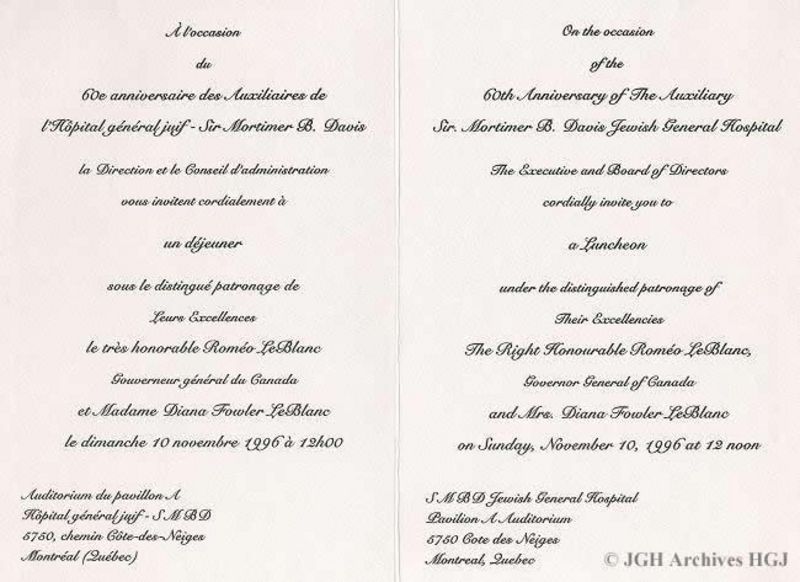 À l'occasion
du
60e anniversaire des Auxiliaires de
l'Hôpital général juif - Sir Mortimer B. Davis
la Direction et le Conseil d'administration
vous invitent cordialement à
un déjeuner
sous le distingué patronage de
Leurs Excellences
le très honorable Roméo LeBlanc
Gouverneur général du Canada
et Madame Diana Fowler LeBlanc
le dimanche 10 novembre 1996 à 12h00
Auditorium du pavillon A
Hôpital général juif - SMBD
5750, chemin Côte-des-Neiges
Montréal (Québec)
On the occasion
of the
60th Anniversary of The Auxiliary
Sir. Mortimer B. Davis Jewish General Hospital
The Executive and Board of Directors
cordially invite you to
a Luncheon
under the distinguished patronage of
Their Excellencies
The Right Honourable Roméo LeBlanc,
Governor General of Canada
and Mrs. Diana Fowler LeBlanc
on Sunday, November 10, 1996 at 12 noon
SMBD Jewish General Hospital
Pavilion A Auditorium
5750 Cote des Neiges
Montreal, Quebec
© JGH Archives HGJ